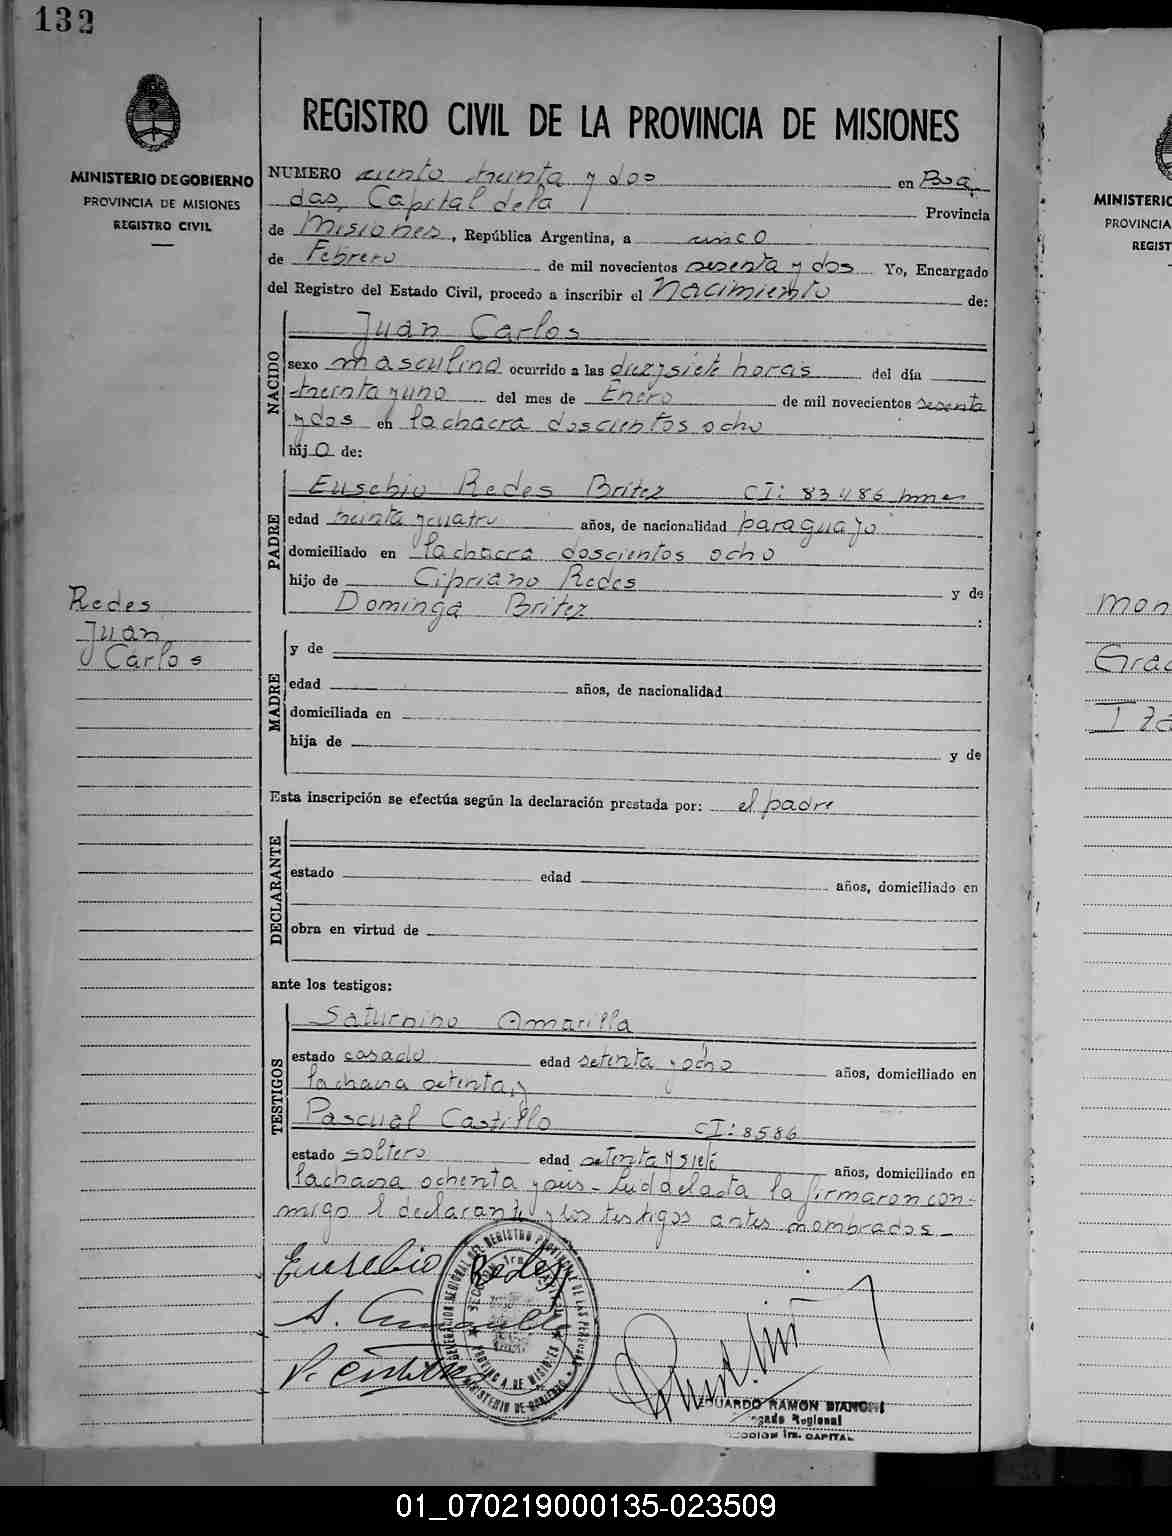 132
MINISTERIO DE GOBIERNO
PROVINCIA DE MISIONES
REGISTRO CIVIL
Redes
Juan
Carlos
REGISTRO CIVIL DE LA PROVINCIA DE MISIONES
NUMERO ciento treinta y dos en Posa
das, Capital de la Provincia
de Misiones, República Argentina, a cinco
de Febrero de mil novecientos sesenta y dos Yo, Encargado
del Registro del Estado Civil, procedo a inscribir el Nacimiento de:
NACIDO
Juan Carlos
sexo masculino ocurrido a las diezysiete horas del día
treinta y uno del mes de Enero de mil novecientos sesenta
y dos en la chacra doscientos ocho
hijo de:
PADRE
Eusebio Redes Britez CI: 83486
edad treinta y cuatro años, de nacionalidad paraguayo
domiciliado en la chacra doscientos ocho
hijo de Cipriano Redes y de
Dominga Britez :
MADRE
y de
edad años, de nacionalidad
domiciliada en
hija de y de
Esta inscripción se efectúa según la declaración prestada por: el padre
DECLARANTE
estado edad años, domiciliado en
obra en virtud de
ante los testigos:
TESTIGOS
Saturnino Amarilla
estado casado edad setenta y ocho años, domiciliado en
la chacra setenta, y
Pascual Castillo CI: 8586
estado soltero edad setenta y siete años, domiciliado en
la chacra ochenta y seis - Leida el acta la firmaron con-
migo el declarante y los testigos antes nombrados -
Eusebio Redes
S. Amarilla
P. Castillo
EDUARDO RAMON BIANCHI
Regional
SECCION 1ra. CAPITAL
MINISTERIO
PROVINCIA
REGIST
Mon
Grac
01_070219000135-023509